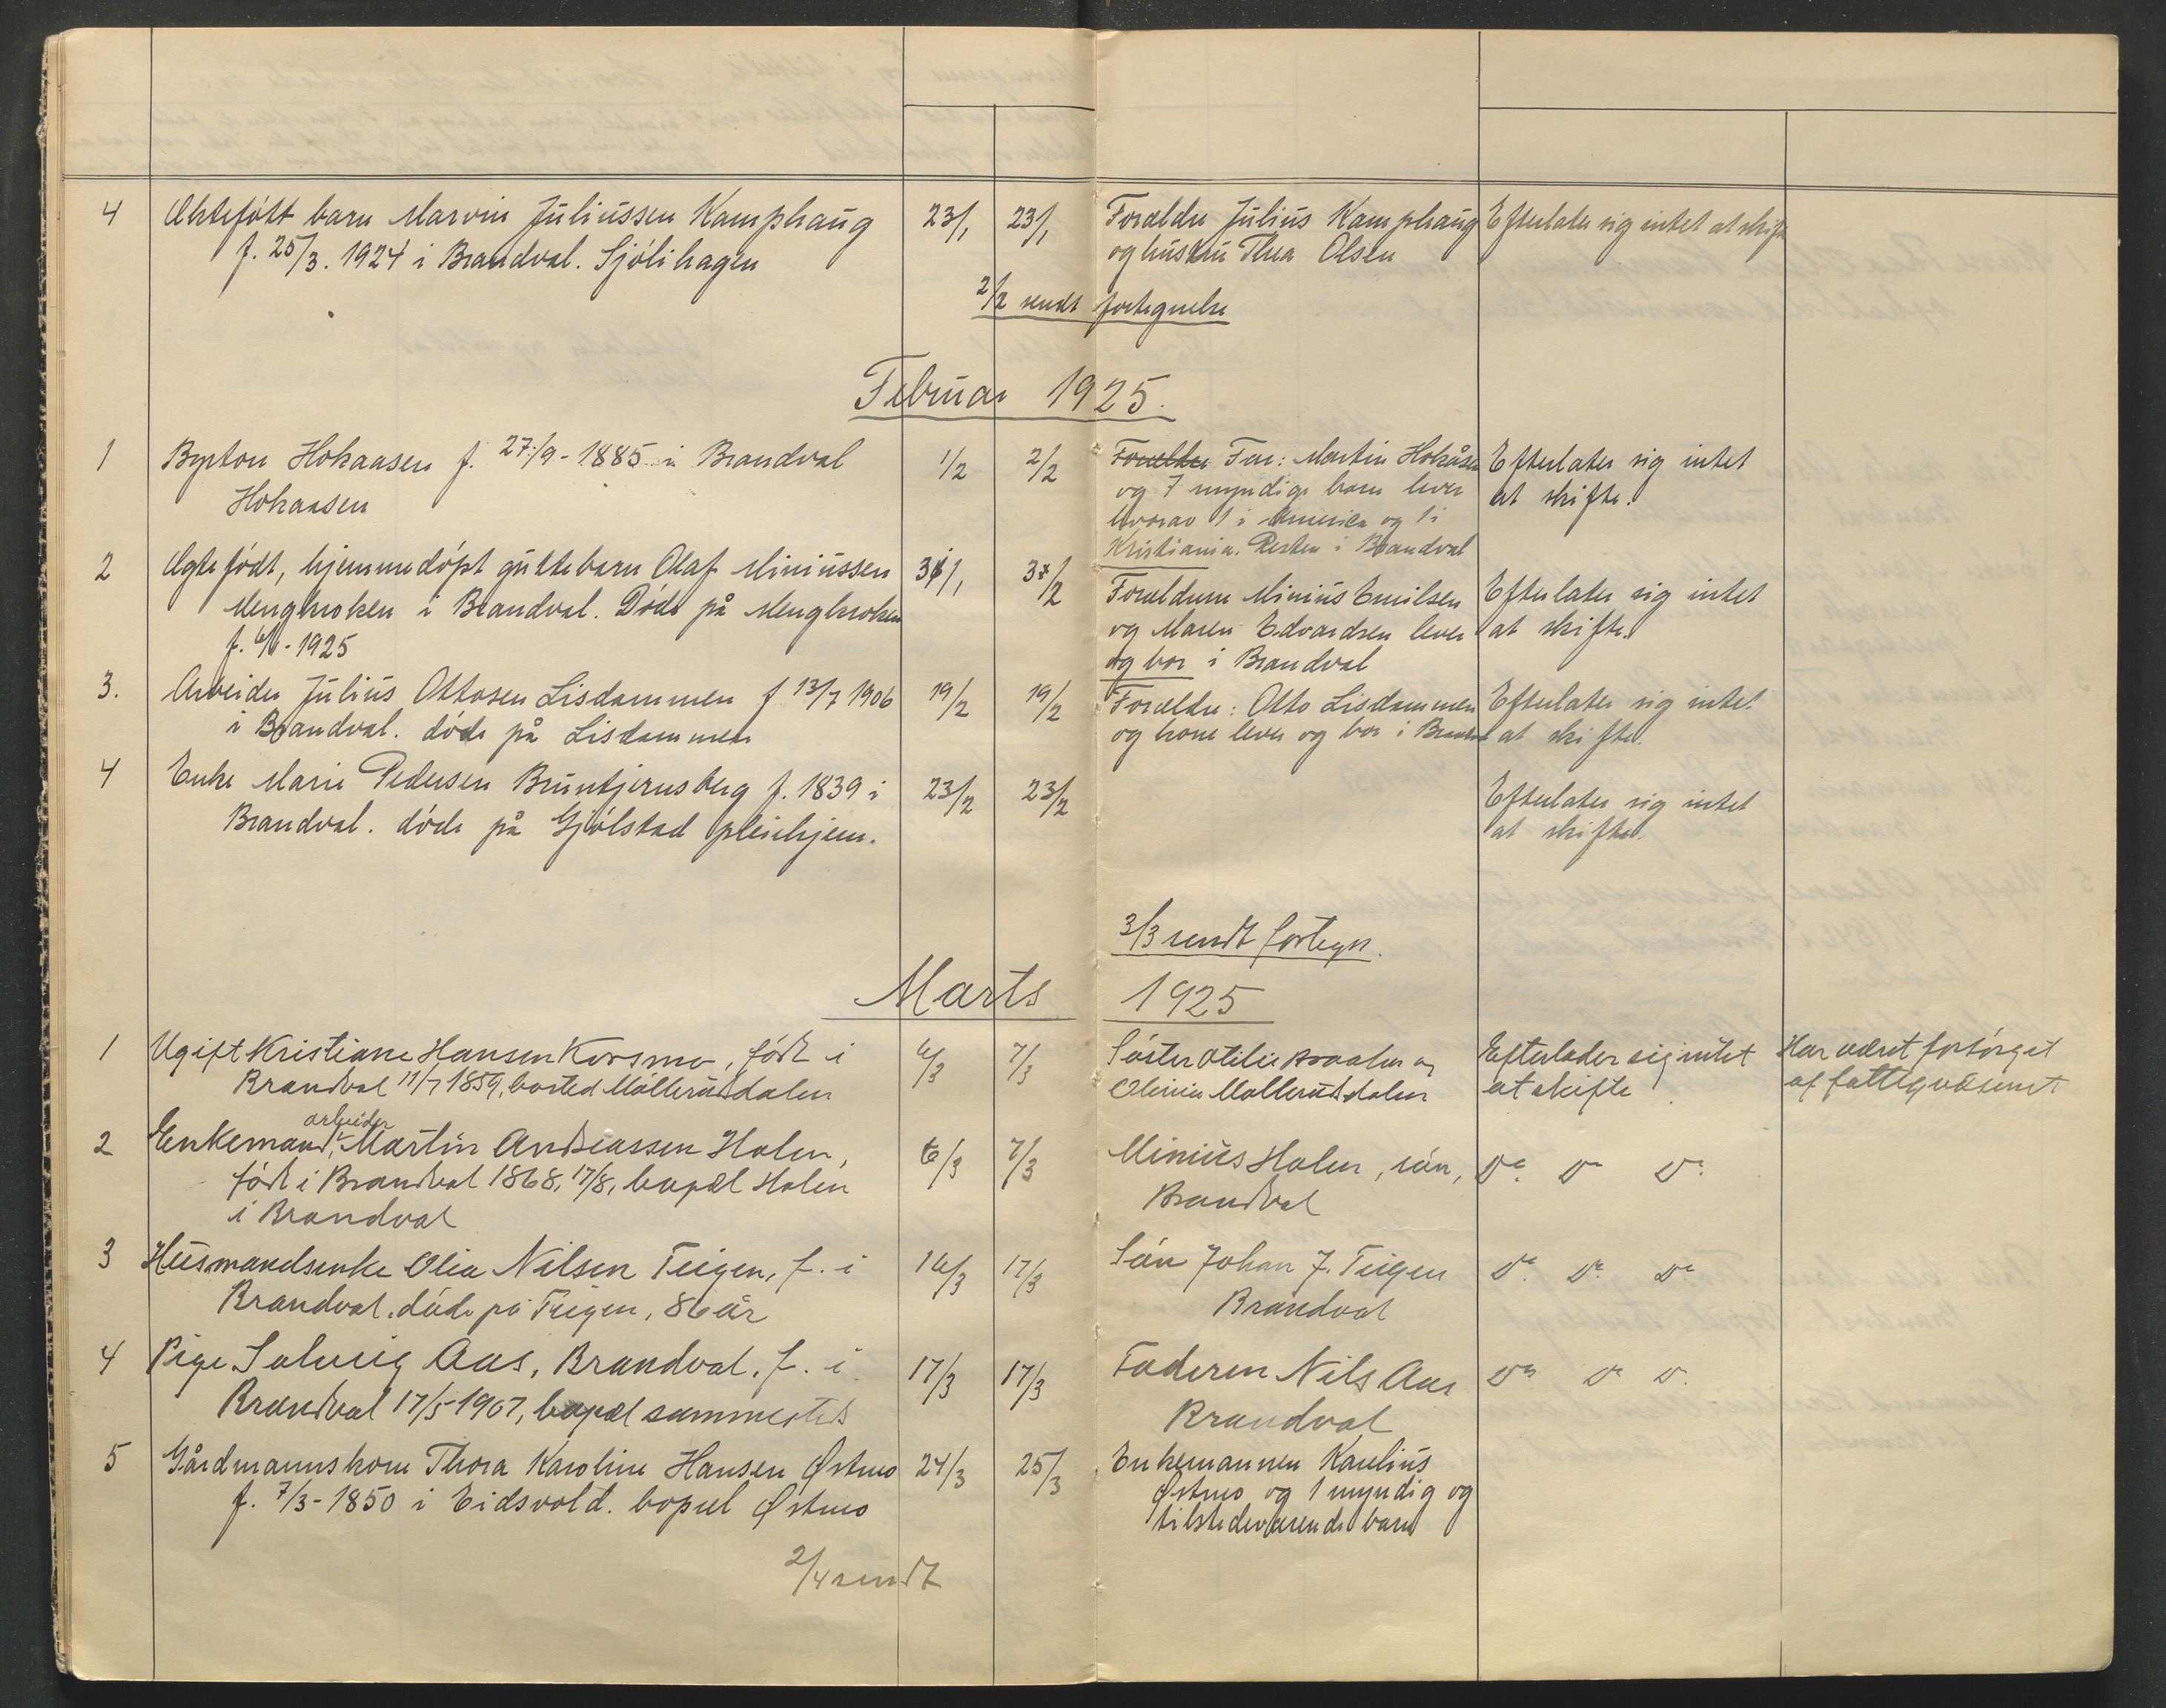 4 Ektefött barn Marvin Júliússen Kamphaúg 23/1 23/1 Foreldre Július Kamphaúg Efterlater sig intet at skifte
f. 25/3. 1924 i Brandval. Sjölihagen og hústrú Thea Olsen
2/2 sendt fortegnelse
Febrúar 1925.
1 Byrton Hokaasen f. 27/9-1885 i Brandval 1/2 2/2 Foreldre Far: Martin Hokåsen Efterlater sig intet
Hokaasen og 7 myndige barn lever at skifte.
hvorav 1 i America og 1 i
Kristiania. Resten i Brandval
2 Ægtefödt, hjemmedöpt gúttebarn Olaf Miniússen 31/1 3/2 Foreldrene Miniús Emilsen Efterlater sig intet
Mengkroken i Brandval. Döde på Mengkroken og Maren Edvardsen lever at skifte.
f. 6/1-1925 og bor i Brandval
3. Arbeider Júliús Ottosen Lisdammen f 13/7 1906 19/2 19/2 Foreldre: Otto Lisdammen Efterlater sig intet
i Brandval. döde på Lisdammen og kone lever og bor i Brandval at skifte.
4 Enke Marie Pedersen Brúntjernsberg f. 1839 i 23/2 23/2 Efterlater sig intet
Brandval. döde på Gjölstad pleiehjem. at skifte.
3/3 sendt fortegn.
Marts 1925
1 Ugift Kristiane Hansen Korsmo, födt i 6/3 7/3 Söster Otilie Braaten og Efterlader sig intet Har været forsörget
Brandval 11/7 1859, bosted Möllerúdsdalen Oline Mollerúdsdalen at skifte af fattigvæsenet
arbeider
2 Enkemand, Martin Andreassen Holen, 6/3 7/3 Miniús Holen, sön, Do. Do Do.
födt i Brandval 1868, 17/8, bopæl Holen Brandval
i Brandval
3 Húsmandsenke Olia Nilsen Teigen, f. i 16/3 17/3 Sön Johan J. Teigen Do. Do. Do
Brandval. döde på Teigen, 86 år Brandval
4 Pige Solveig Aas, Brandval, f. i 17/3 17/3 Faderen Nils Aas Do Do Do.
Brandval 17/5-1907, bopæl sammesteds Brandval
5 Gårdmannskone Thora Karoline Hansen Østmo 24/3 25/3 Enkemannen Kaúliús
f. 7/3-1850 i Eidsvold. bopæl Østmo Østmo og 1 myndig og
tilstedeværende barn
2/4 sendt